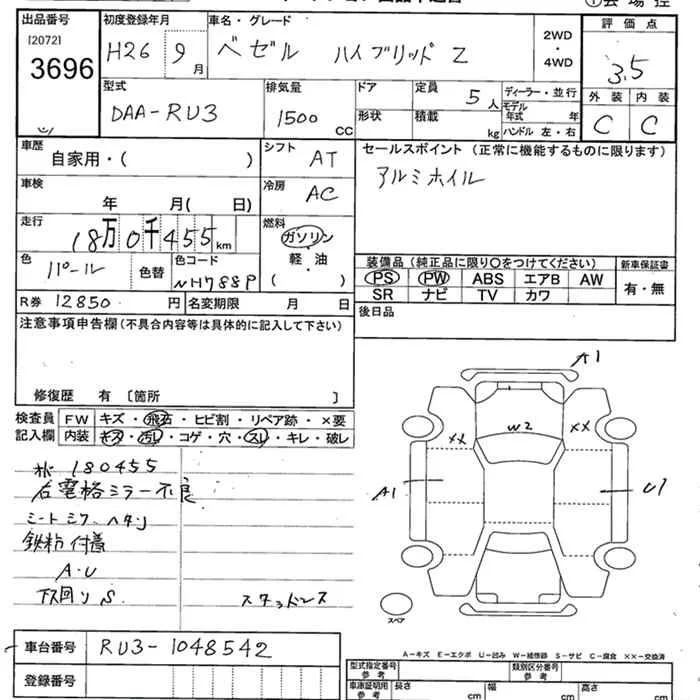 出品番号 初度登録年月 車名・グレード 評価点
[2072] H26 9月 ベゼル ハイブリッド Z 2WD・4WD 3.5
3696
型式 排気量 ドア 定員 ディーラー・並行 外装 内装
DAA-RU3 1500 CC 形状 積載 5人 kg モデル年式 年 C C
ハンドル 左・右
車歴 シフト セールスポイント(正常に機能するものに限ります)
自家用・( ) AT アルミホイル
車検 冷房
年 月( 日) AC
走行 燃料
18万0千455km ガソリン
軽・油
( )
色 色替 色コード 装備品(純正品に限り〇をつけてください) 新車保証書
パール NH788P PS PW ABS エアB AW 有・無
SR ナビ TV カワ
R券 12850円 名変期限 月 日 後日品
注意事項申告欄(不具合内容等は具体的に記入して下さい)
修復歴 有 [箇所 ]
検査員 FW キズ・飛石・ヒビ割・リペア跡・×要
記入欄 内装 キズ・汚レ・コゲ・穴・スレ・キレ・破レ
180455
右電格ミラー不良
シートシワ、ヘタリ
鉄粉付着
A・U
下回りS スタッドレス
A1
XX XX
W2
A1 U1
スペア
A-キズ E-エクボ U-凹み W-補修跡 S-サビ C-腐食 ××-交換済
車台番号 RU3-1048542
登録番号
型式指定番号 参考 類別区分番号 参考
車庫証明用 参考 長さ cm 幅 cm 高さ cm